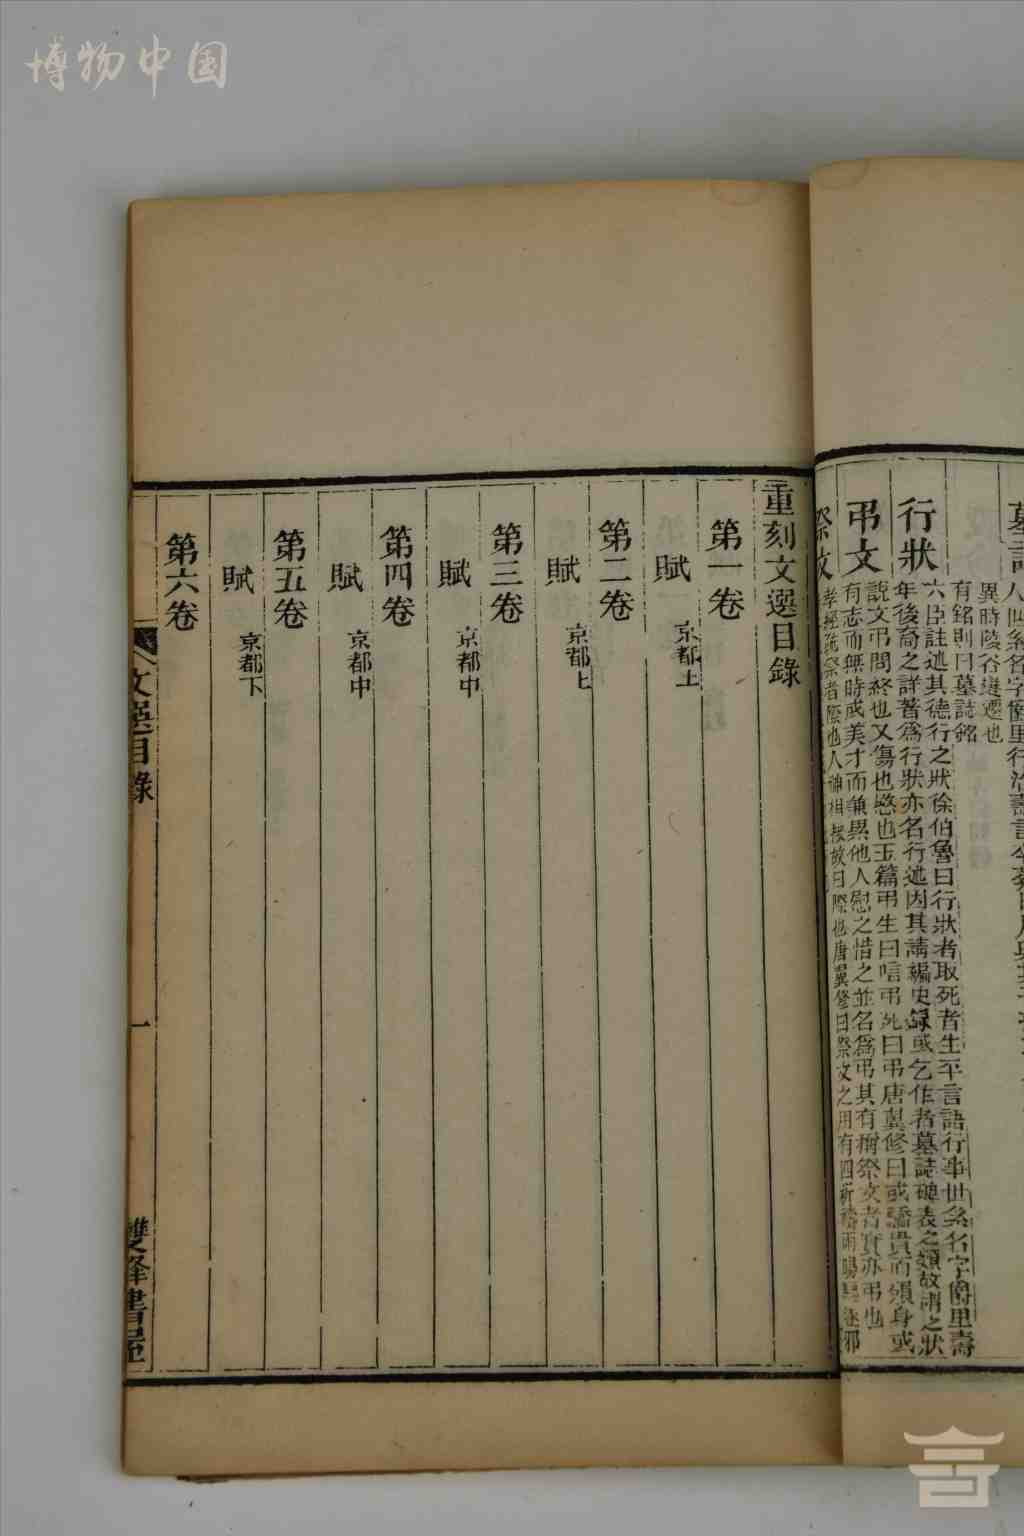 博物中国
墓誌
異時陵谷變遷也
有銘則曰墓誌銘
行狀
六臣註述其德行之狀徐伯魯曰行狀者取死者生平言語行事世系名字爵里壽
年後裔之詳著為行狀亦名行述因其請編史録或乞作者墓誌碑表之類故謂之狀
弔文
說文弔問終也又傷也愍也玉篇弔生曰唁弔死曰弔唐翼修曰或驕貴而殞身或
有志而無時或美才而兼異他人慰之惜之並名為弔其有稱祭文者實亦弔也
祭文
重刻文選目錄
第一卷
賦
京都上
第二卷
賦
京都上
第三卷
賦
京都中
第四卷
賦
京都中
第五卷
賦
京都下
第六卷
文選目錄
一
雙峰書屋